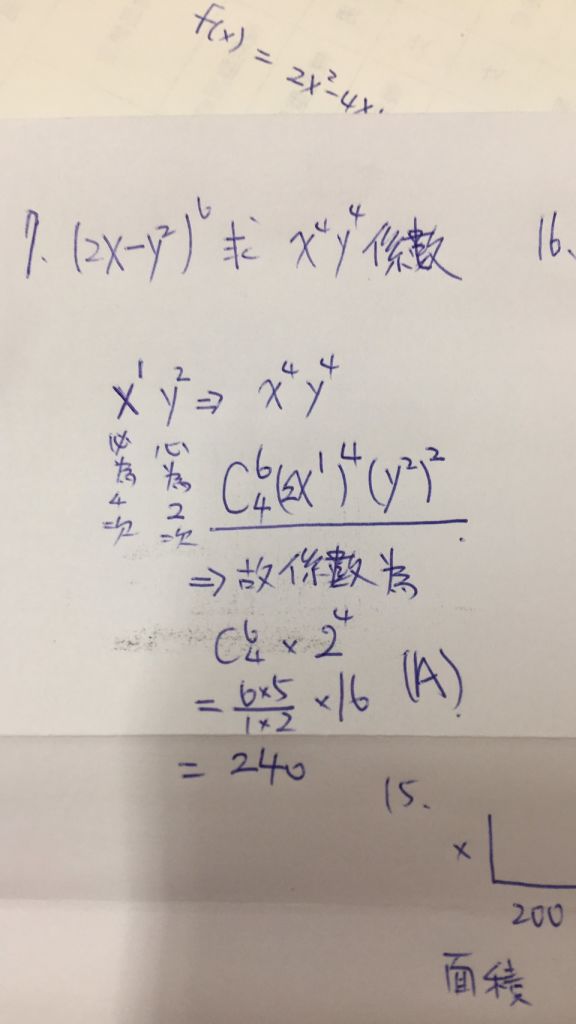 f(x) = 2x²-4x.
7. (2x-y²)⁶ 求 x⁴y⁴係數
16.
x¹ y² ⇒ x⁴y⁴
必為4次 必為2次
C⁶₄(2x¹)⁴(y²)²
⇒故係數為
C⁶₄ × 2⁴
= 6×5/1×2 ×16 (A)
= 240
15.
x
200
面積